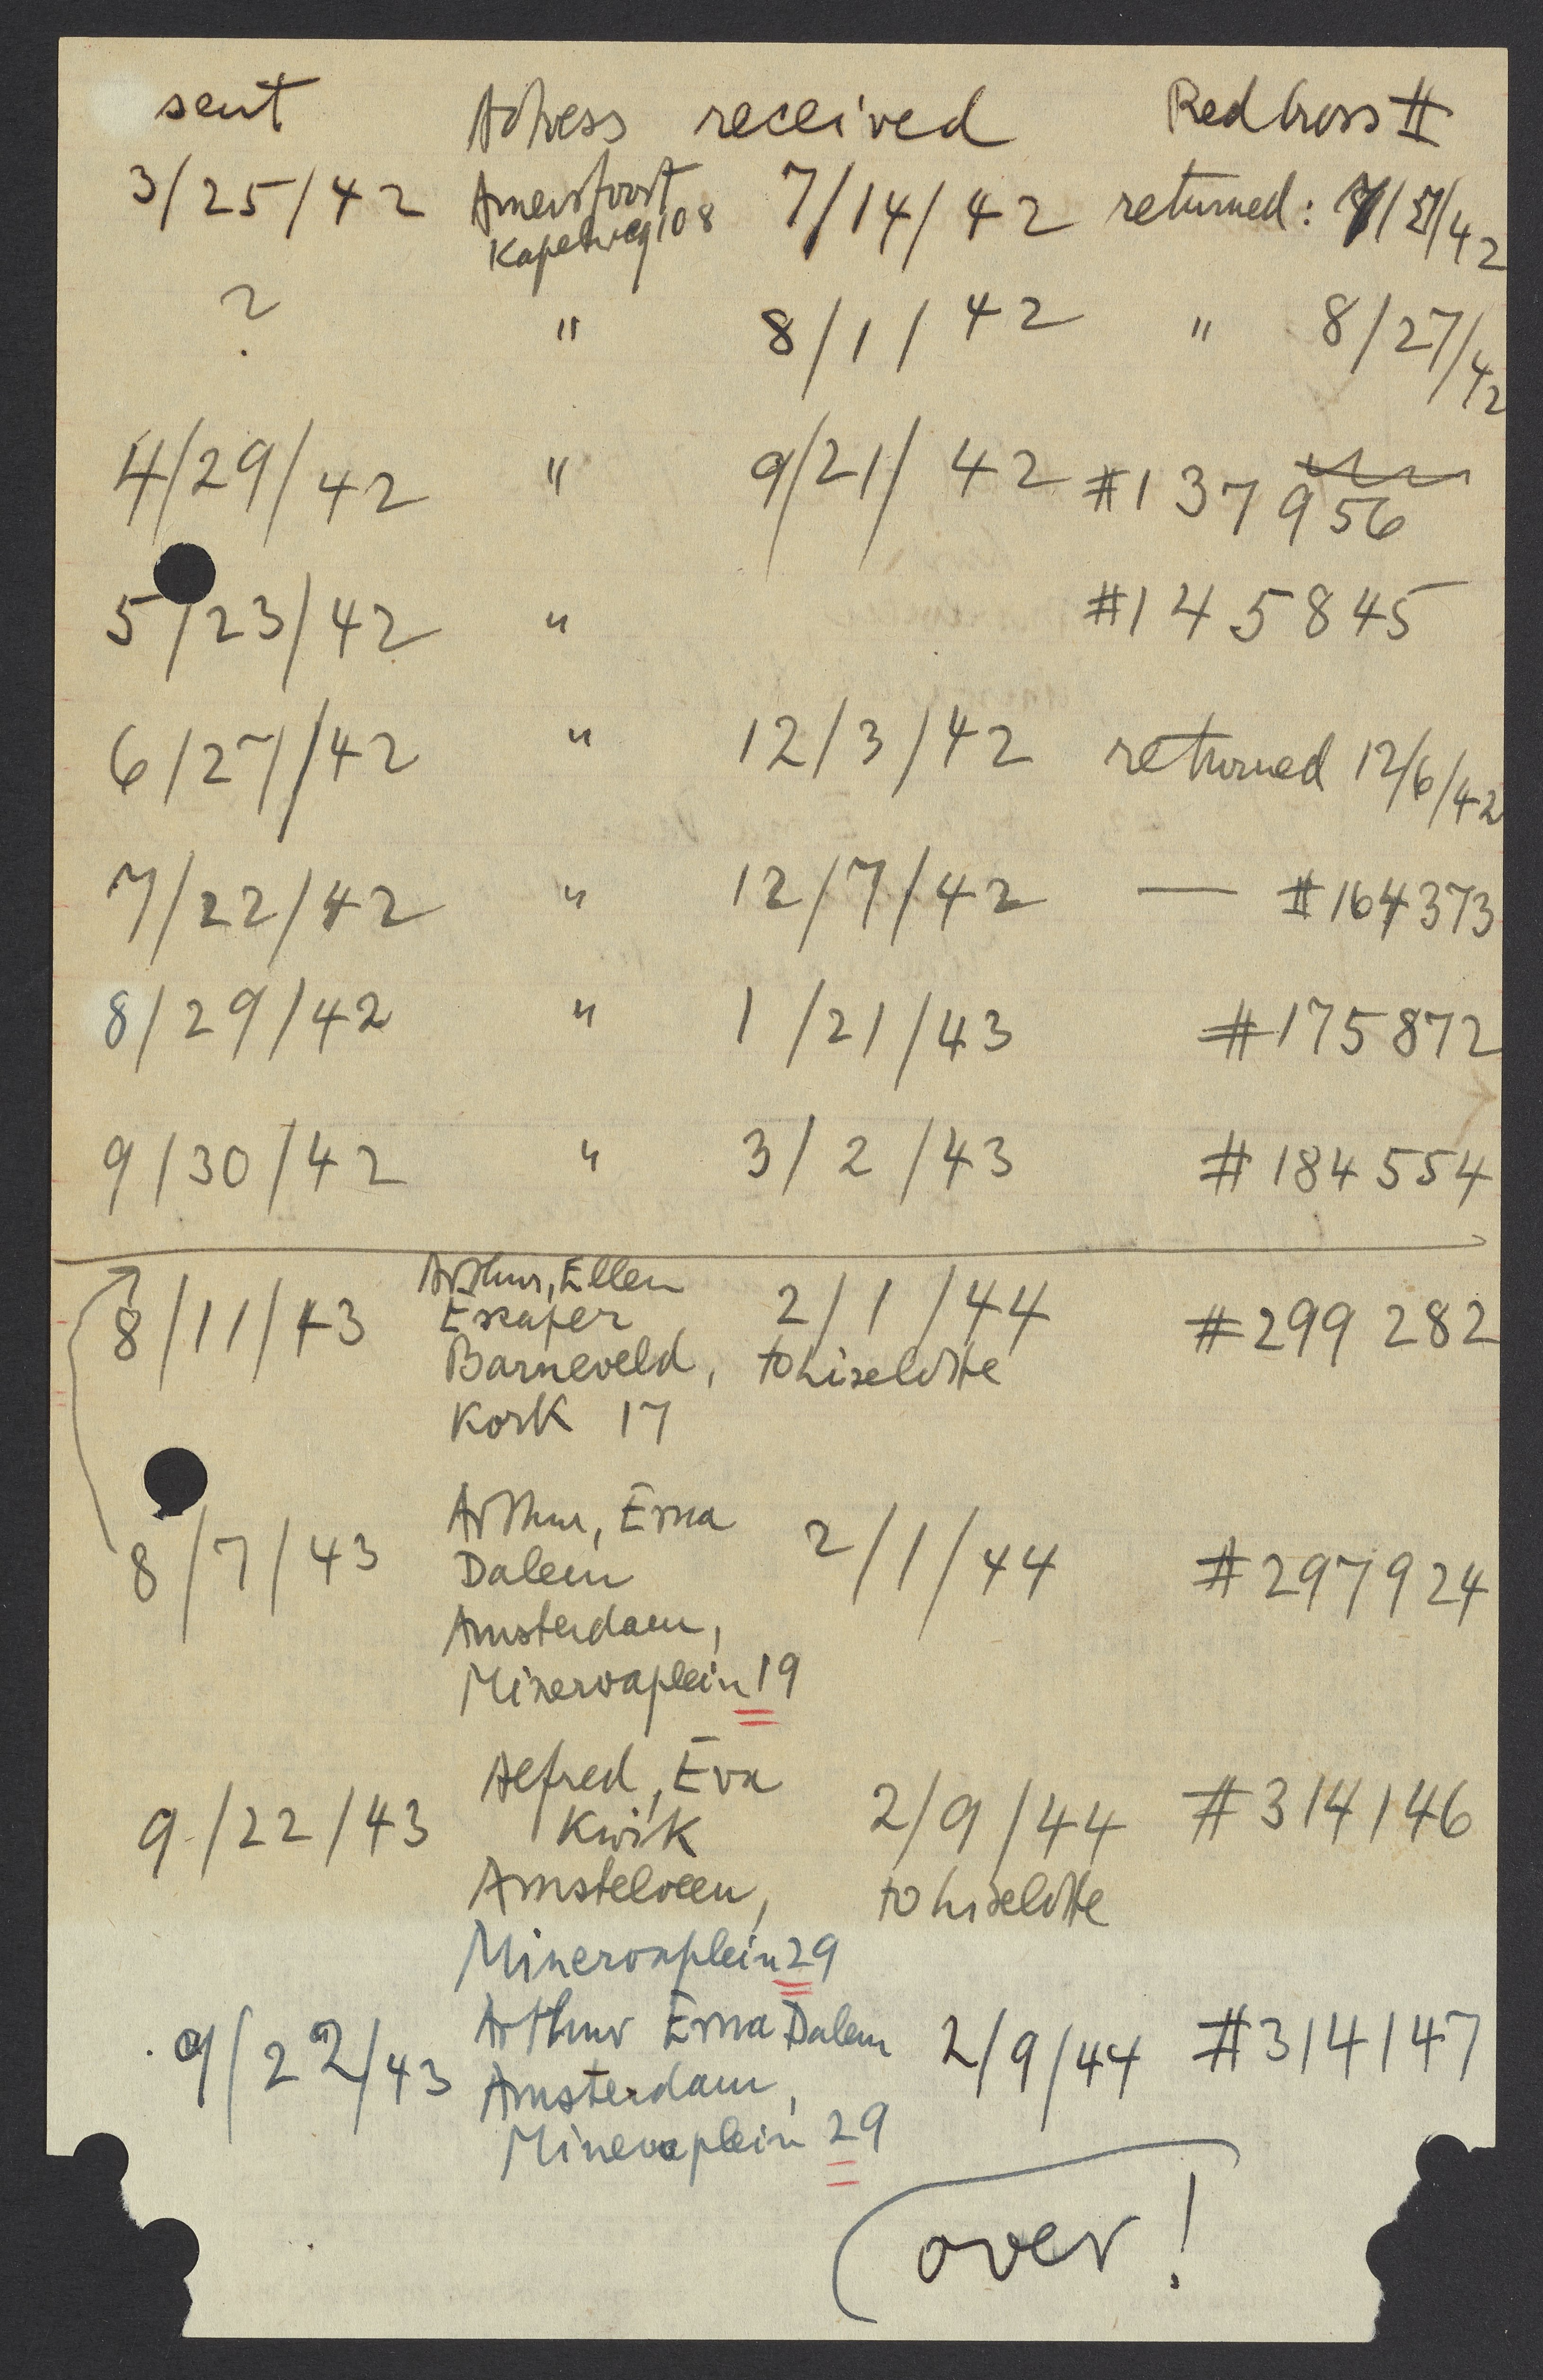 sent Adress received Red Cross #
3/25/42 Amersfoort 7/14/42 returned: /42
Kapelweg 108
? " 8/1/42 " 8/27/42
4/29/42 " 9/21/42 #137956
5/23/42 " #145845
6/27/42 " 12/3/42 returned 12/6/42
7/22/42 " 12/7/42 — #164373
8/29/42 " 1/21/43 #175872
9/30/42 " 3/2/43 #184554
8/11/43 Arthur, Ellen 2/1/44 #299282
Barneveld, to Liselotte
Kork 17
8/7/43 Arthur, Erna 2/1/44 #297924
Dalem
Amsterdam,
Minervaplein 19
9/22/43 Alfred, Eva 2/9/44 #314146
Kwik
Amstelveen, to Liselotte
Minervaplein 29
9/22/43 Arthur Erna Dalem 2/9/44 #314147
Amsterdam,
Minervaplein 29
over!